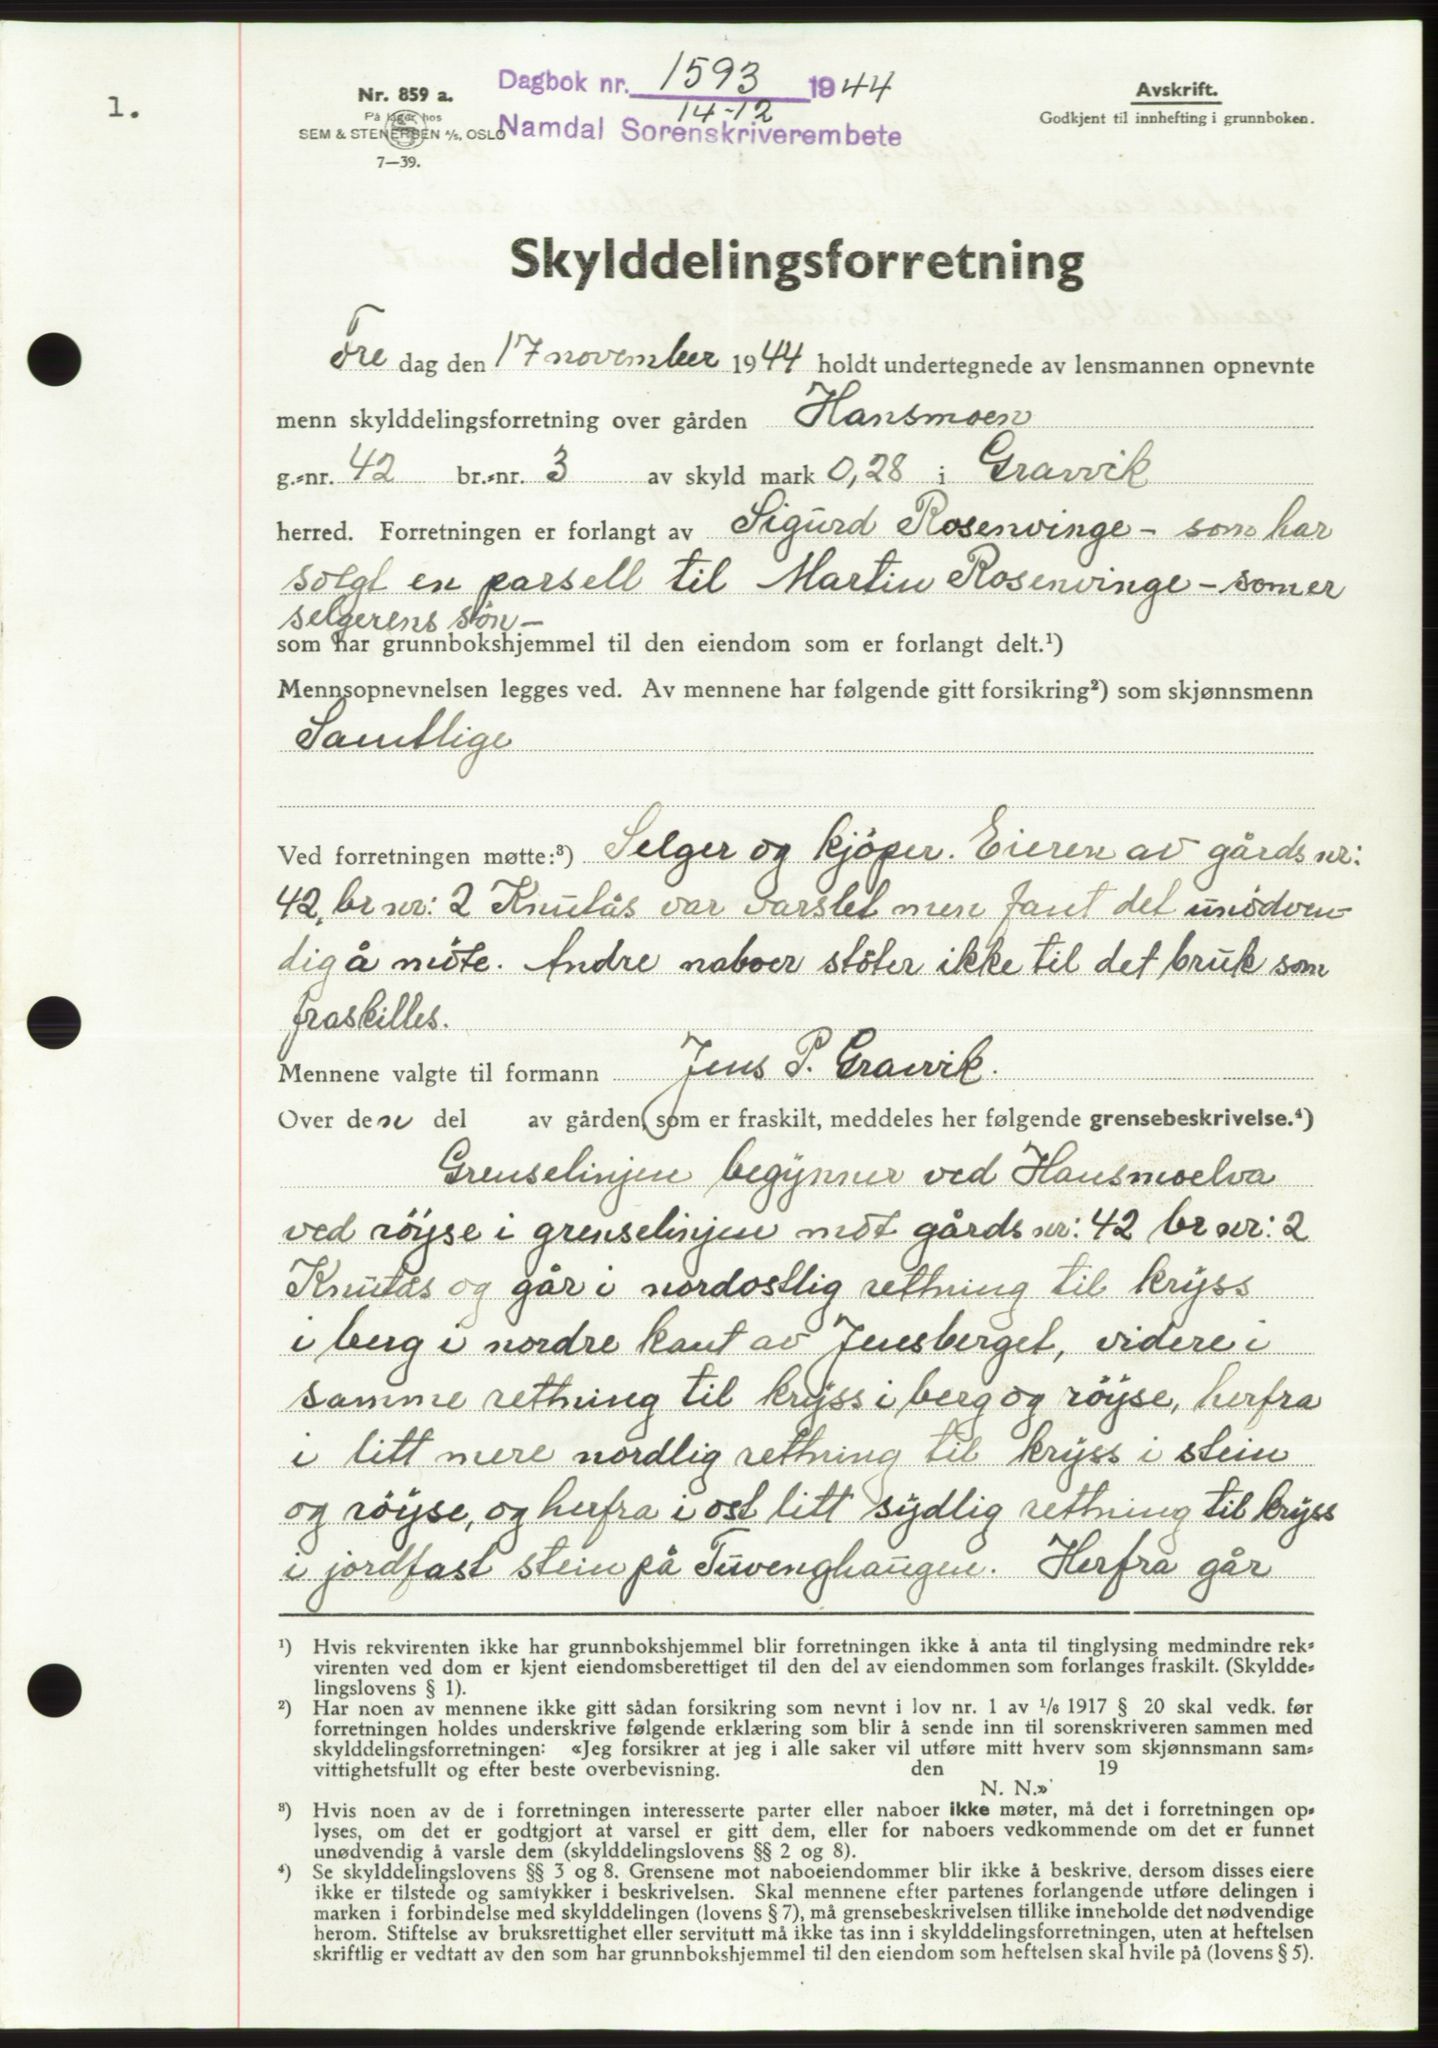 1.
Nr. 859 a.
På lager hos
SEM & STENERSEN A/S, OSLO
7—39.
Dagbok nr. 1593 1944
14-12
Namdal Sorenskriverembete
Avskrift.
Godkjent til innhefting i grunnboken.
Skylddelingsforretning
Fre dag den 17 november 1944 holdt undertegnede av lensmannen opnevnte
menn skylddelingsforretning over gården Hansmoen
g.-nr. 42 br.-nr. 3 av skyld mark 0,28 i Gravvik
herred. Forretningen er forlangt av Sigurd Rosenvinge – som har
solgt en parsell til Martin Rosenvinge – som er
selgerens søn –
som har grunnbokshjemmel til den eiendom som er forlangt delt.¹)
Mennsopnevnelsen legges ved. Av mennene har følgende gitt forsikring²) som skjønnsmenn
Samtlige
Ved forretningen møtte:³) Selger og kjöper. Eieren av gårds nr:
42, br nr: 2 Knutås var varslet men fant det unödven-
dig å möte. Andre naboer stöter ikke til det bruk som
fraskilles.
Mennene valgte til formann Jens P. Gravvik.
Over den del av gården, som er fraskilt, meddeles her følgende grensebeskrivelse.⁴)
Grenselinjen begynner ved Hansmoelva
ved röyse i grenselinjen mot gårds nr: 42 br nr: 2
Knutås og går i nordostlig rettning til kryss
i berg i nordre kant av Jensberget, videre i
samme rettning til kryss i berg og röyse, herfra
i litt mere nordlig rettning til kryss i stein
og röyse, og herfra i ost litt sydlig rettning til kryss
i jordfast stein på Tuvenghaugen. Herfra går
¹) Hvis rekvirenten ikke har grunnbokshjemmel blir forretningen ikke å anta til tinglysing medmindre rek-
virenten ved dom er kjent eiendomsberettiget til den del av eiendommen som forlanges fraskilt. (Skyldde-
lingslovens § 1).
²) Har noen av mennene ikke gitt sådan forsikring som nevnt i lov nr. 1 av ¹/₆ 1917 § 20 skal vedk. før
forretningen holdes underskrive følgende erklæring som blir å sende inn til sorenskriveren sammen med
skylddelingsforretningen: «Jeg forsikrer at jeg i alle saker vil utføre mitt hverv som skjønnsmann sam-
vittighetsfullt og efter beste overbevisning. den 19
N. N.»
³) Hvis noen av de i forretningen interesserte parter eller naboer ikke møter, må det i forretningen op-
lyses, om det er godtgjort at varsel er gitt dem, eller for naboers vedkommende om det er funnet
unødvendig å varsle dem (skylddelingslovens §§ 2 og 8).
⁴) Se skylddelingslovens §§ 3 og 8. Grensene mot naboeiendommer blir ikke å beskrive, dersom disses eiere
ikke er tilstede og samtykker i beskrivelsen. Skal mennene efter partenes forlangende utføre delingen i
marken i forbindelse med skylddelingen (lovens § 7), må grensebeskrivelsen tillike inneholde det nødvendige
herom. Stiftelse av bruksrettighet eller servitutt må ikke tas inn i skylddelingsforretningen, uten at heftelsen
skriftlig er vedtatt av den som har grunnbokshjemmel til den eiendom som heftelsen skal hvile på (lovens § 5).